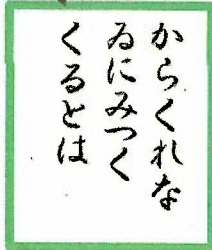 からくれな
ゐにみつく
くるとは